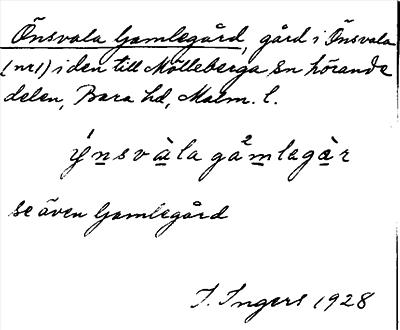 Önsvala Gamlegård, gård i Önsvala
(nr1) i den till Mölleberga sn hörande
delen, Bara hd, Malm. l.
ýnsvàla gå²mlegàr
se även Gamlegård
I. Ingers 1928